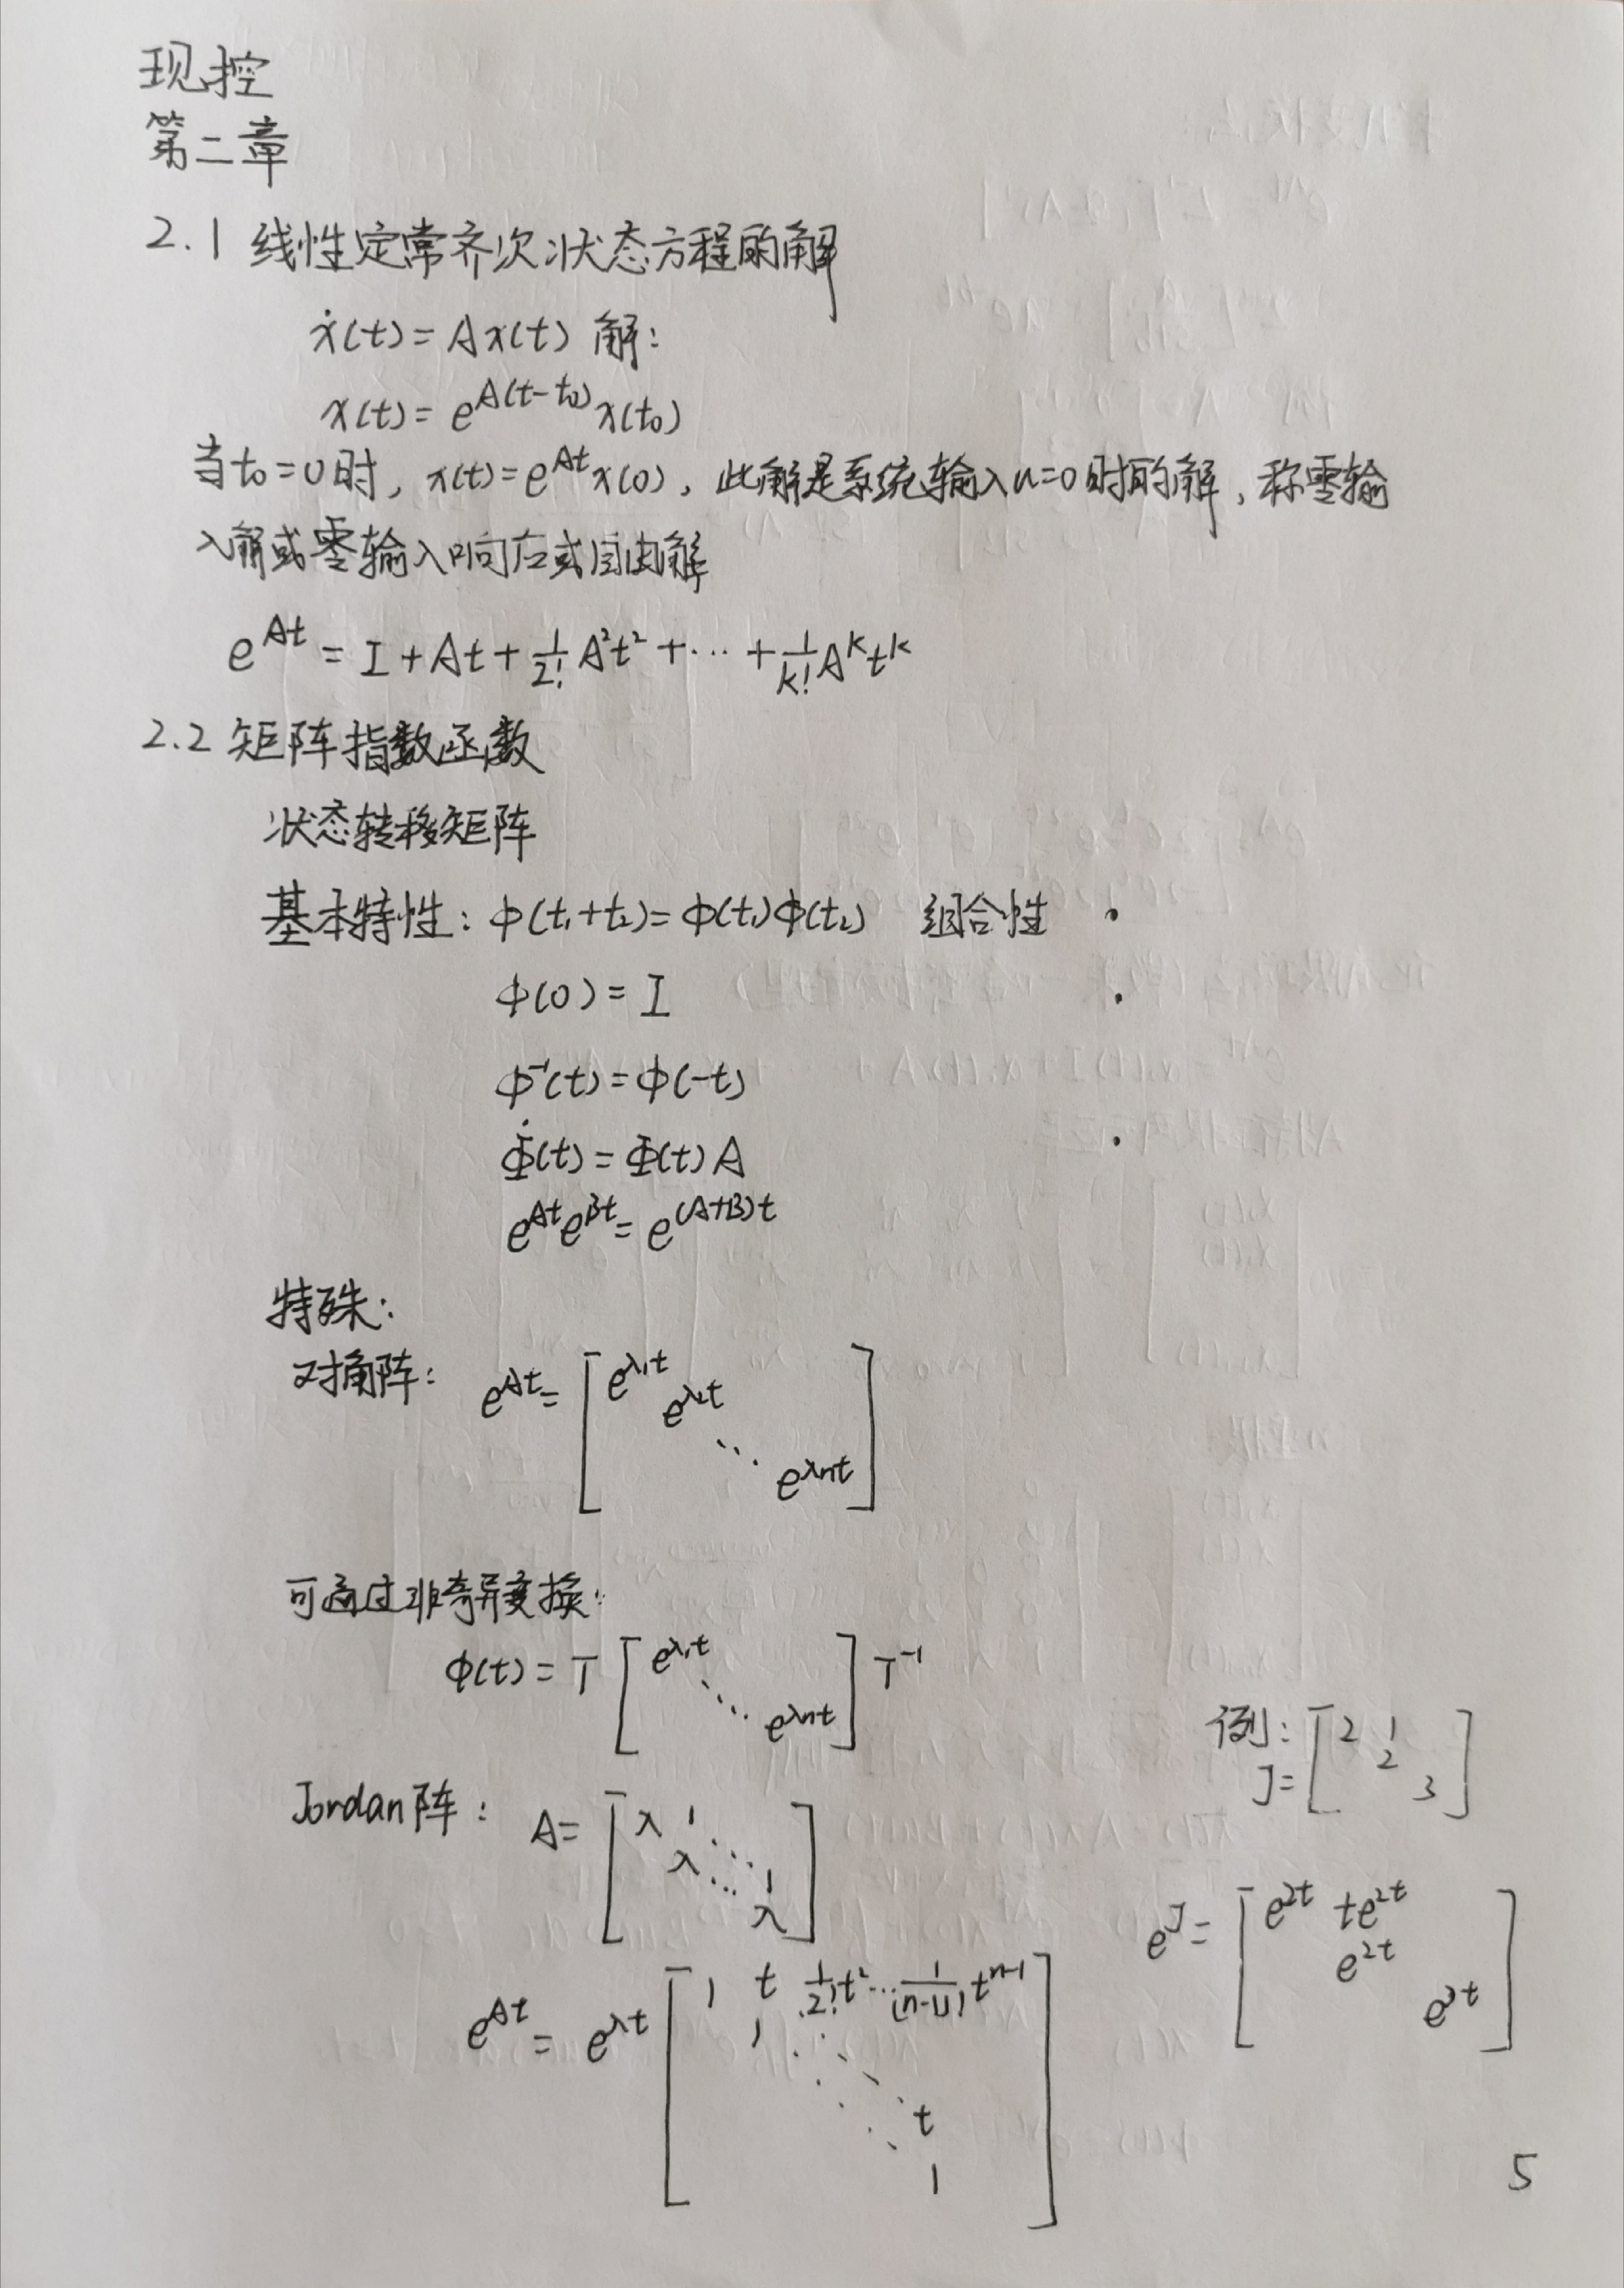 现控
第二章
2.1 线性定常齐次状态方程的解
ẋ(t) = Ax(t) 解:
x(t) = e^{A(t-t₀)} x(t₀)
当t₀=0时, x(t)=e^{At}x(0), 此解是系统输入u=0时的解, 称零输
入解或零输入响应或自由解
e^{At} = I + At + \frac{1}{2!}A²t² + ⋯ + \frac{1}{k!}A^k t^k
2.2 矩阵指数函数
状态转移矩阵
基本特性: φ(t₁+t₂)=φ(t₁)φ(t₂) 组合性
φ(0) = I
φ⁻¹(t) = φ(-t)
Φ̇(t) = Φ(t)A
e^{At}e^{Bt} = e^{(A+B)t}
特殊:
对角阵: e^{At} = [e^{λ₁t} e^{λ₂t} ⋱ e^{λnt}]
可通过非奇异变换:
φ(t) = T [e^{λ₁t} ⋱ e^{λnt}] T⁻¹
例:
J = [2 1 2 3]
Jordan阵: A = [λ 1 ⋱ λ ⋱ 1 λ]
e^J = [e^{2t} te^{2t} e^{2t} e^{3t}]
e^{At} = e^{λt} [1 t \frac{1}{2!}t² ⋯ \frac{1}{(n-1)!}t^{n-1} 1 ⋱ ⋱ t 1]
5